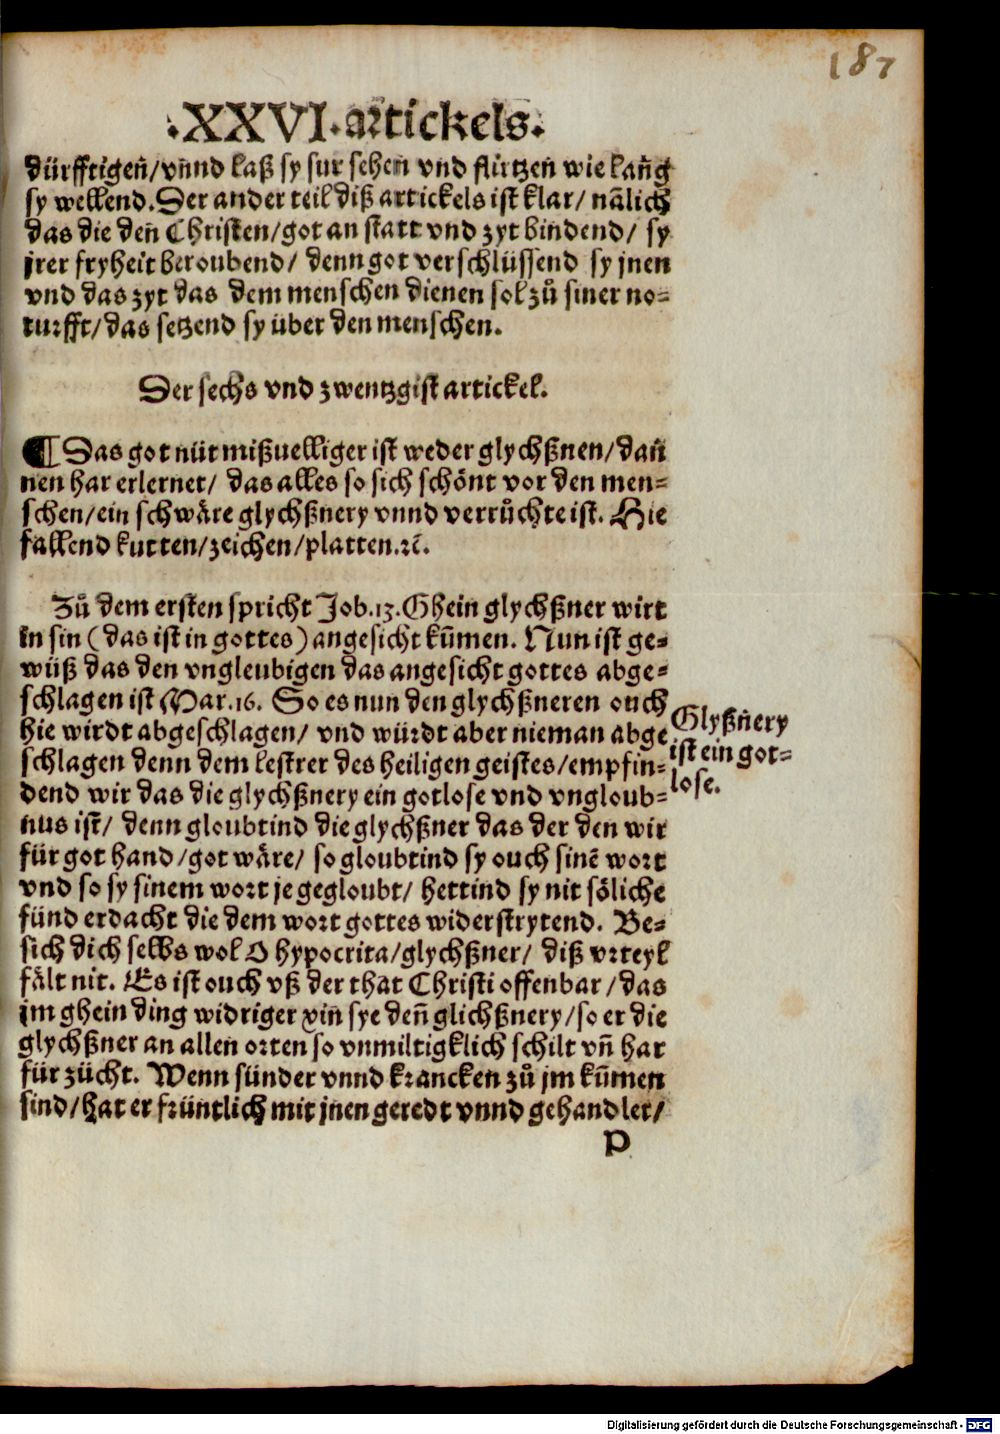 187
.XXVI.artickels.
dürfftigen̄/vn̄nd laß sy sur sehen vnd flürtzen wie lang
sy wellend. Der ander teil diß artickels ist klar/ nālich
das die den̄ Christen/got an statt vnd zyt bindend/ sy
jrer fryheit beroubend/ denn got verschlüssend sy jnen
vnd das zyt das dem menschen dienen sol zů siner no=
turfft/das setzend sy über den menschen.
Der sechs vnd zwentzgist artickel.
¶ Das got nüt mißuelliger ist weder glychßnen/dan̄
nen har erlernet/ das alles so sich schönt vor den men=
schen/ein schwäre glychßnery vnnd verrůchte ist. Hie
fallend kutten/zeichen/platten.ꝛc̄.
Zů dem ersten spricht Job.13.Ghein glychßner wirt
in sin (das ist in gottes) angesicht kūmen. Nun ist ge=
wüß das den vngleubigen das angesicht gottes abge=
schlagen ist Mar.16. So es nun den glychßneren ouch
hie wirdt abgeschlagen/ vnd würdt aber nieman abge
schlagen denn dem lestrer des heiligen geistes/empfin=
dend wir das die glychßnery ein gotlose vnd vngloub=
nus ist/ denn gloubtind die glychßner das der den wir
für got hand/got wäre/ so gloubtind sy ouch sinē wort
vnd so sy sinem wort je gegloubt/ hettind sy nit söliche
fünd erdacht die dem wort gottes widerstrytend. Be=
sich dich selbs wol O hypocrita/glychßner/ diß vrteyl
fält nit. Es ist ouch vß der that Christi offenbar/das
jm ghein ding widriger xin sye den̄ glichßnery/so er die
glychßner an allen orten so vnmiltigklich schilt vn̄ hat
für zücht. Wenn sünder vnnd krancken zů jm kūmen
sind/hat er früntlich mit jnen geredt vnnd gehandlet/
Glyßnery
ist ein got=
lose.
p
Digitalisierung gefördert durch die Deutsche Forschungsgemeinschaft - DFG